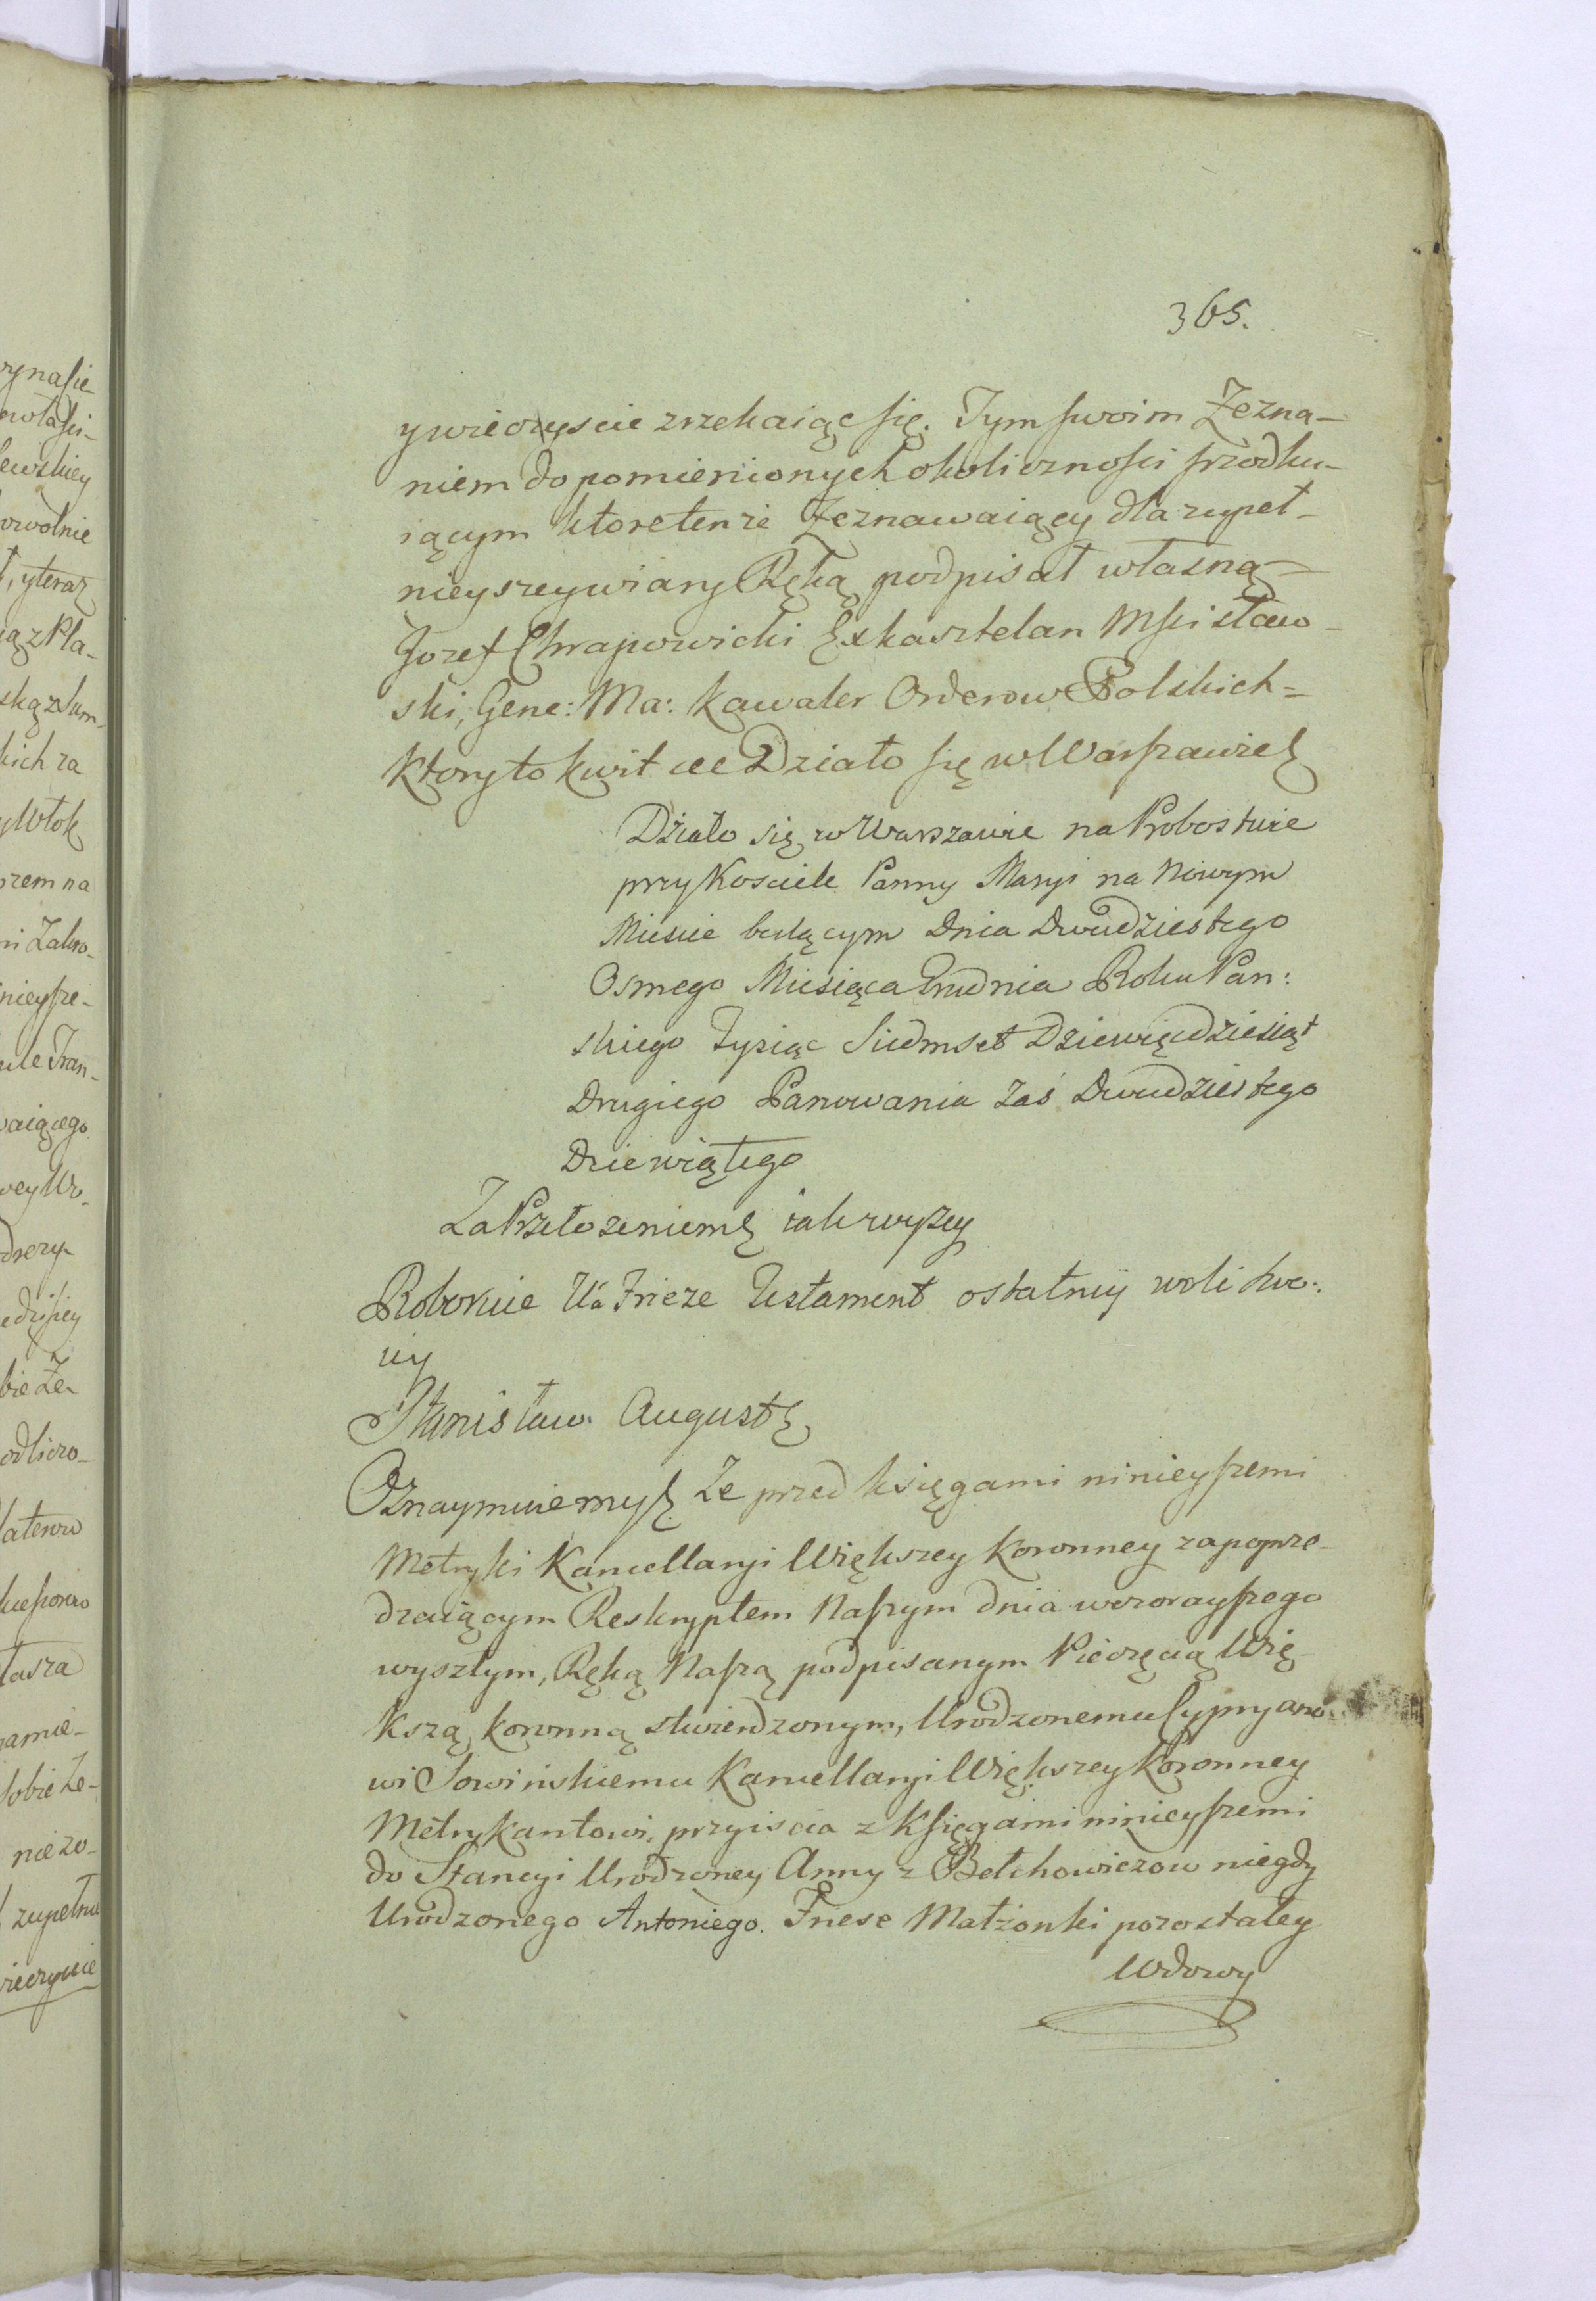 365.
y wieczyscie zrzekaiąc się. Tym swoim Zezna-
niem do pomienionych okoliczności
iącym ktore tenze Zeznawaiący dla zupeł-
nieyszey wiary Ręką podpisał własną=
Jozef Chrapowicki Exkasztelan Mscisław-
ski, Gene: Ma: Kawaler Orderow Polskich=
Ktory to kwit Działo się w Warszawie
Działo się w Warszawie na Probostwie
przy Kosciele Panny Maryi na Nowym
Miescie będącym Dnia Dwudziestego
Osmego Miesiąca Grudnia Roku Pan:
skiego Tysiąc Siedmset Dziewięcdziesiąt
Drugiego Panowania Zaś Dwudziestego
Dziewiątego
Za Przełozeniem iak wyzey
Roboruie Ur̃a Frieze Testament ostatniy woli swo:
iey
Stanisław August
Oznaymuiemy Ze przed księgami ninieyszemi
Metryki Kancellaryi Większey Koronney zapoprze-
dzaiącym Reskryptem Naszym dnia wczorayszego
wyszłym, Ręką Naszą podpisanym Pieczęcią Wię-
kszą koronną stwierdzonym, Urodzonemu Cypryano-
wi Sowińskiemu Kancellaryi Większey Koronney
Metrykantowi, przyiscia z Księgami ninieyszemi
do Stancyi Urodzoney Anny z Bełchowiczow niegdy
Urodzonego Antoniego Friese Małżonki pozostałey
Wdowy